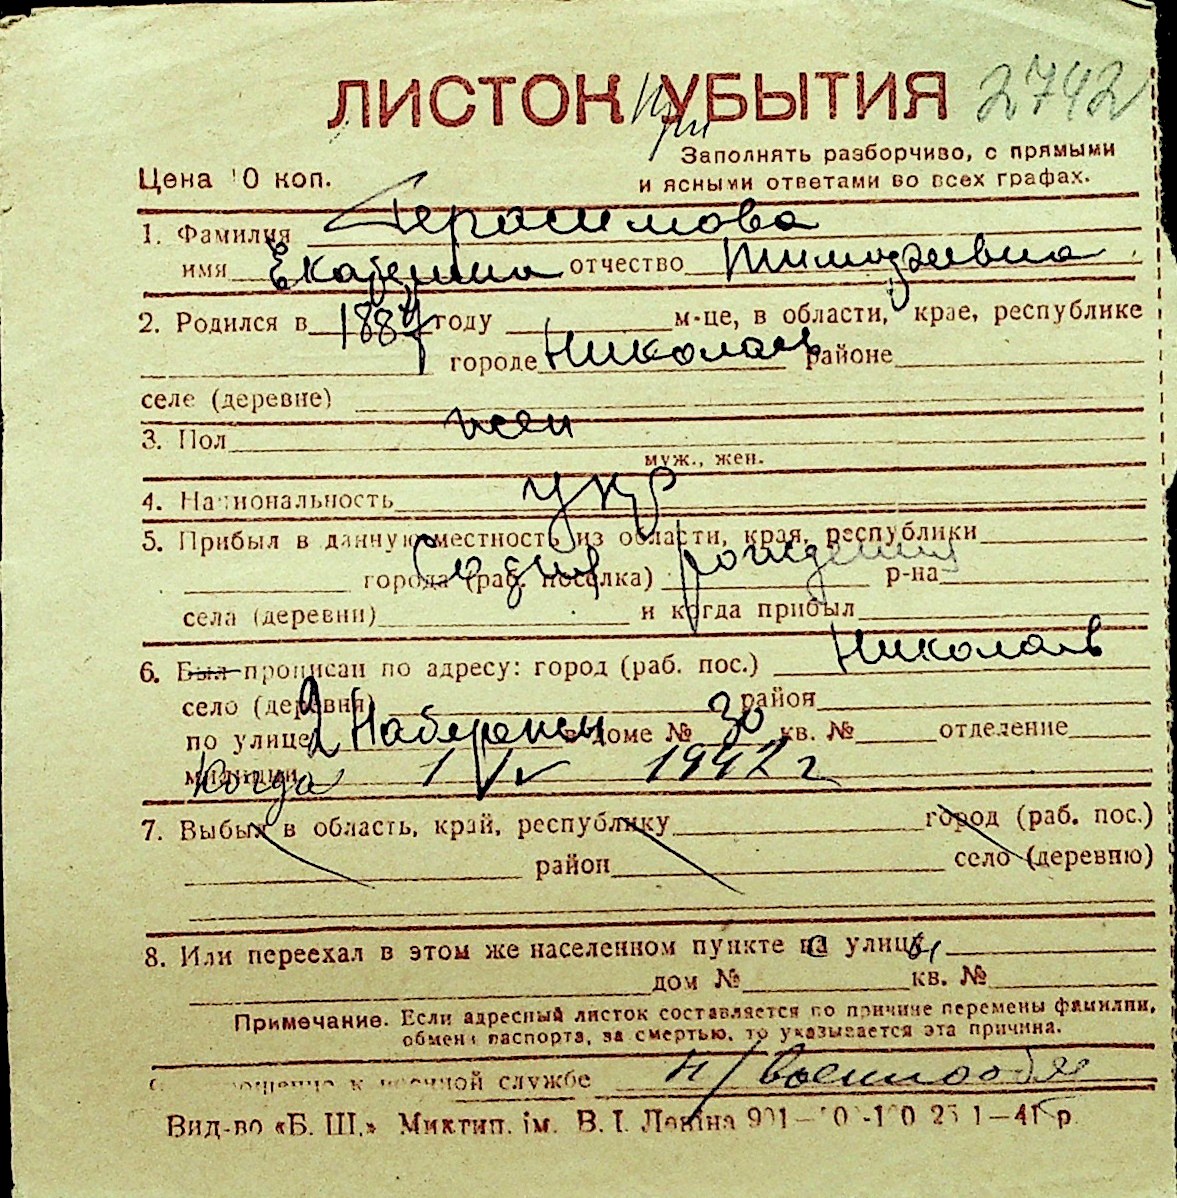 ЛИСТОК УБЫТИЯ 2742
Заполнять разборчиво, с прямыми
Цена 10 коп. и ясными ответами во всех графах.
1. Фамилия Герасимова
имя Екатерина отчество Тимофеевна
2. Родился в 1887 году м-це, в области, крае, республике
городе Николаев районе
селе (деревне)
3. Пол жен
муж., жен.
4. Национальность укр
5. Прибыл в данную местность из области, края, республики
города (раб. поселка) С дня рождения р-на
села (деревни) и когда прибыл
6. Был прописан по адресу: город (раб. пос.) Николаев
село (деревня) район
по улице 2 Набережн в доме № 30 кв. № отделение
милиции Когда 1/IV 1942 г
7. Выбыл в область, край, республику город (раб. пос.)
район село (деревню)
8. Или переехал в этом же населенном пункте с улицы
дом № кв. №
Примечание. Если адресный листок составляется по причине перемены фамилии,
обмена паспорта, за смертью, то указывается эта причина.
Отношение к военной службе н/военнообяз
Вид-во «Б. Ш.» Миктип. ім. В. І. Леніна